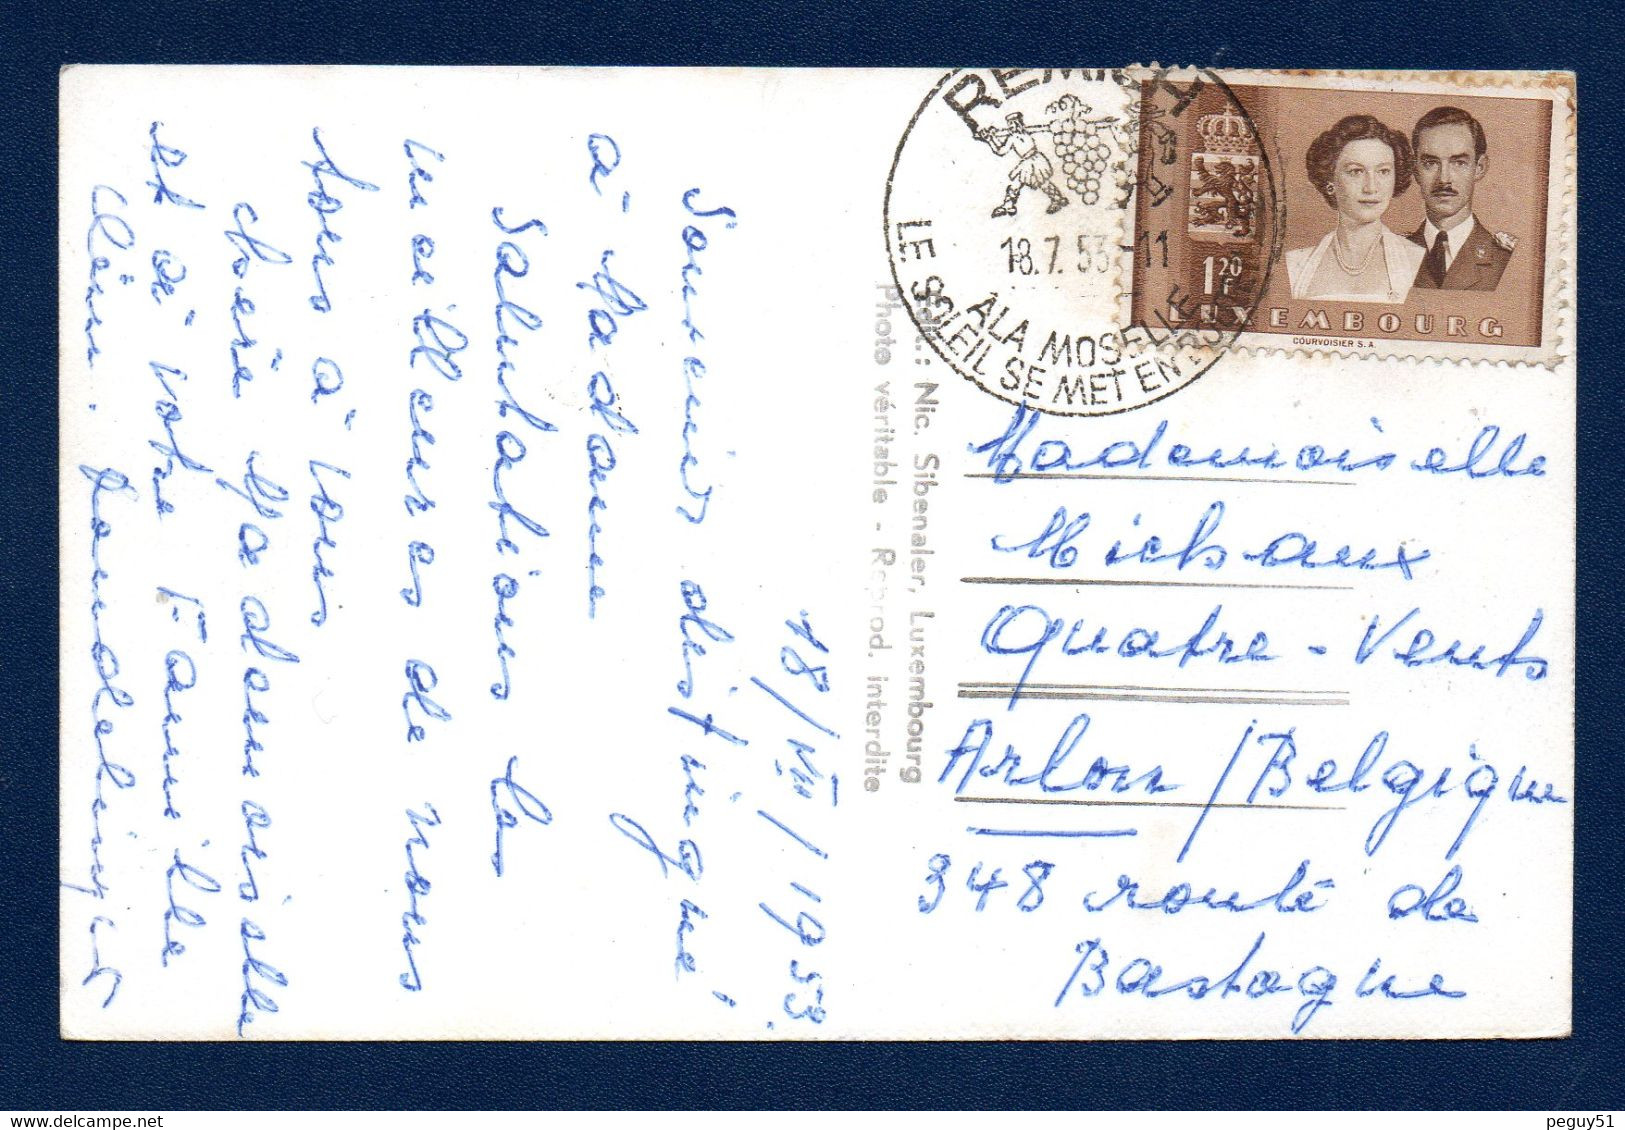 18/VII/1953.
Souvenir distingué
à Madame
Salutations les
meilleures de nous
tous à vous
chérie Mademoiselle
et à votre Famille
REMICH
18.7.53-11
A LA MOSELLE
LE SOLEIL SE MET EN
1 20 F
LUXEMBOURG
COURVOISIER S.A.
Edit.: Nic. Sibenaler, Luxembourg
Photo véritable - Reprod. interdite
Mademoiselle
Michaux
Quatre-Vents
Arlon / Belgique
348 route de
Bastogne
peguy51